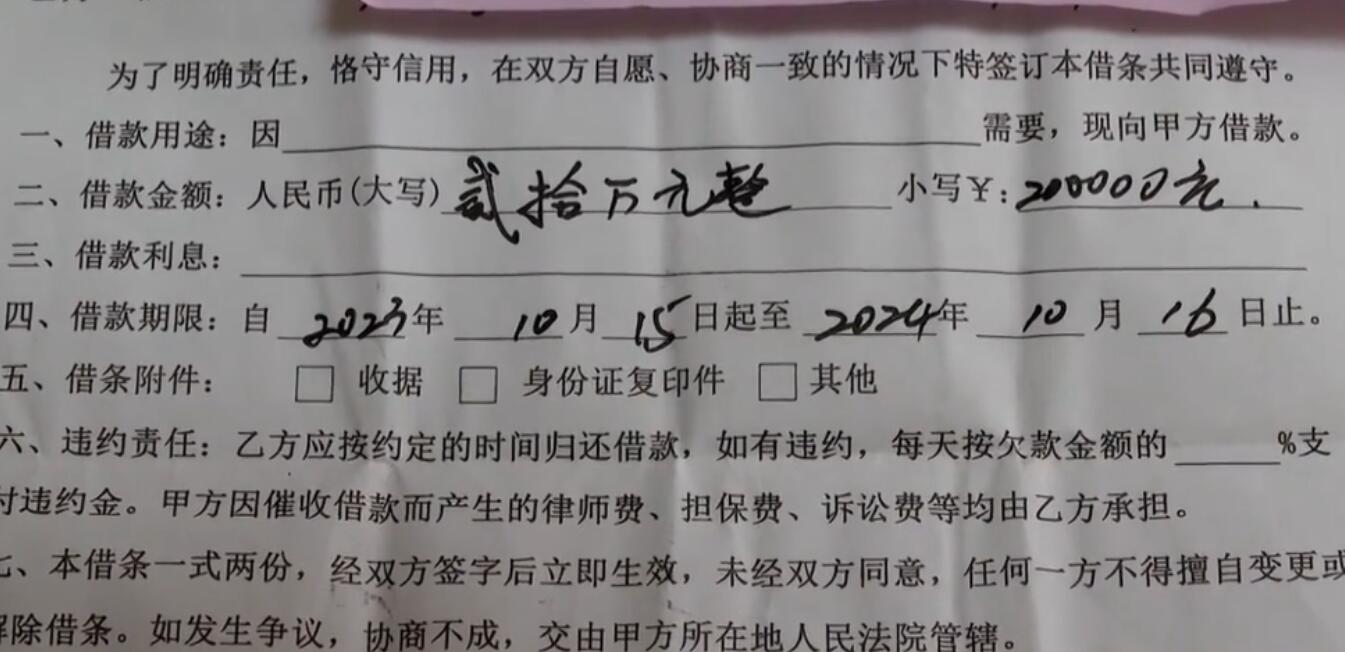 为了明确责任，恪守信用，在双方自愿、协商一致的情况下特签订本借条共同遵守。
一、借款用途：因 需要，现向甲方借款。
二、借款金额：人民币(大写) 贰拾万元整 小写￥：200000元.
三、借款利息：
四、借款期限：自 2023年 10月 15日起至 2024年 10月 16日止。
五、借条附件： □ 收据 □ 身份证复印件 □ 其他
六、违约责任：乙方应按约定的时间归还借款，如有违约，每天按欠款金额的 %支
付违约金。甲方因催收借款而产生的律师费、担保费、诉讼费等均由乙方承担。
七、本借条一式两份，经双方签字后立即生效，未经双方同意，任何一方不得擅自变更或
解除借条。如发生争议，协商不成，交由甲方所在地人民法院管辖。